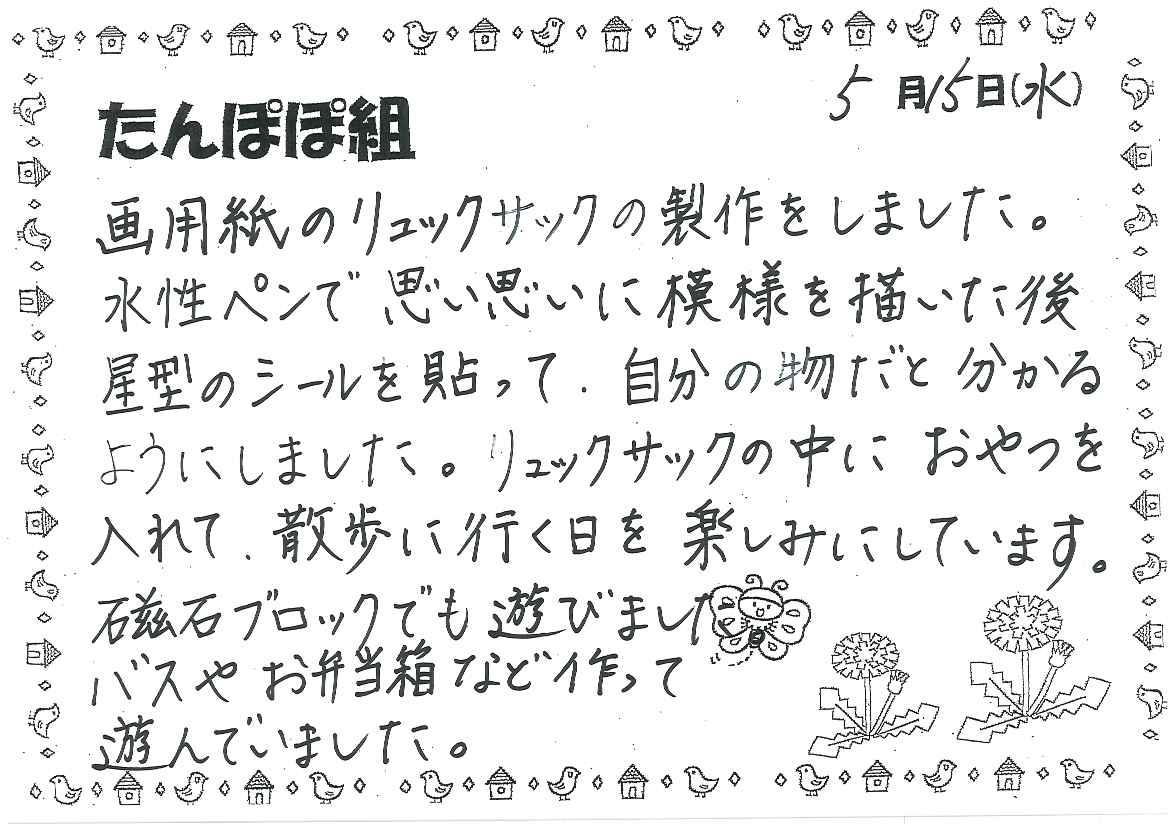 5月15日(水)
たんぽぽ組
画用紙のリュックサックの製作をしました。
水性ペンで思い思いに模様を描いた後
星型のシールを貼って、自分の物だと分かる
ようにしました。リュックサックの中におやつを
入れて、散歩に行く日を楽しみにしています。
磁石ブロックでも遊びました
バスやお弁当箱など作って
遊んでいました。